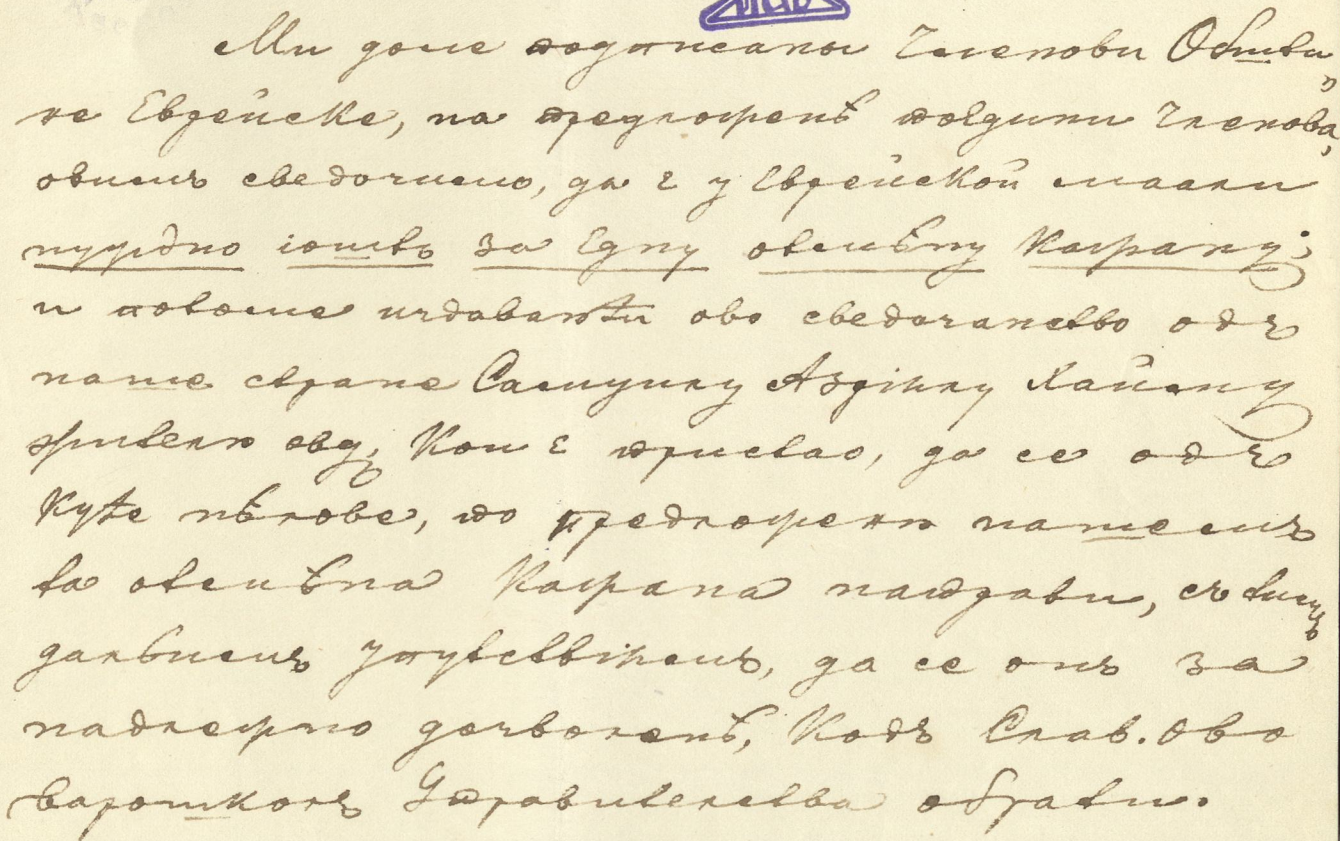 Ми доле подписаны Членови Обштин„
не Евреиске, на предложенѣ поєдини Членова,
овимъ сведочимо, да є у Еврейской маали
нуждно іоштъ за Едну отмѣну Касрану;
и повоше издаваюћи ово сведочанство одъ
наше стране Самуилу Азріилу Хаиму
жителю овд. Кои Є пристао, да се одъ
Куће нѣгове, по предложеню нашемъ
та отмѣна Касрана направи, съ тимъ
далѣимъ упутствіемъ, да се онъ за
надлежно дозволенѣ, Кодъ Слав. Ово
варошкогъ Управителства обрати.